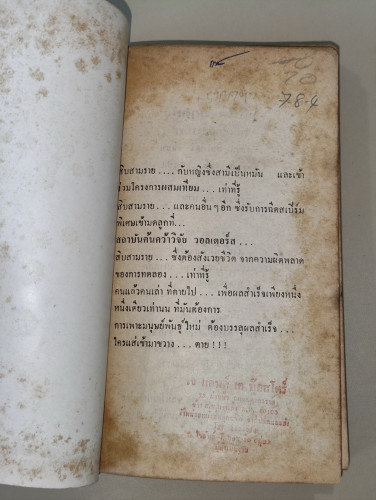 78.4
สิบสามราย .... กับหญิงซึ่งสามีเป็นหมัน และเข้า
ร่วมโครงการผสมเทียม ... เท่าที่รู้
สิบสามราย ... และคนอื่น ๆ อีก ซึ่งรับการฉีดสเปิร์ม
พิเศษเข้ามดลูกที่...
สถาบันค้นคว้าวิจัย วอลเตอร์ส ...
สิบสามราย ... ซึ่งต้องสังเวยชีวิต จากความผิดพลาด
ของการทดลอง ... เท่าที่รู้
คนแล้วคนเล่า ที่ตายไป ... เพื่อผลสำเร็จเพียงหนึ่ง
หนึ่งเดียวเท่านั้น ที่มันต้องการ
การเพาะมนุษย์พันธุ์ใหม่ ต้องบรรลุผลสำเร็จ ...
ใครแส่เข้ามาขวาง ... ตาย ! ! !